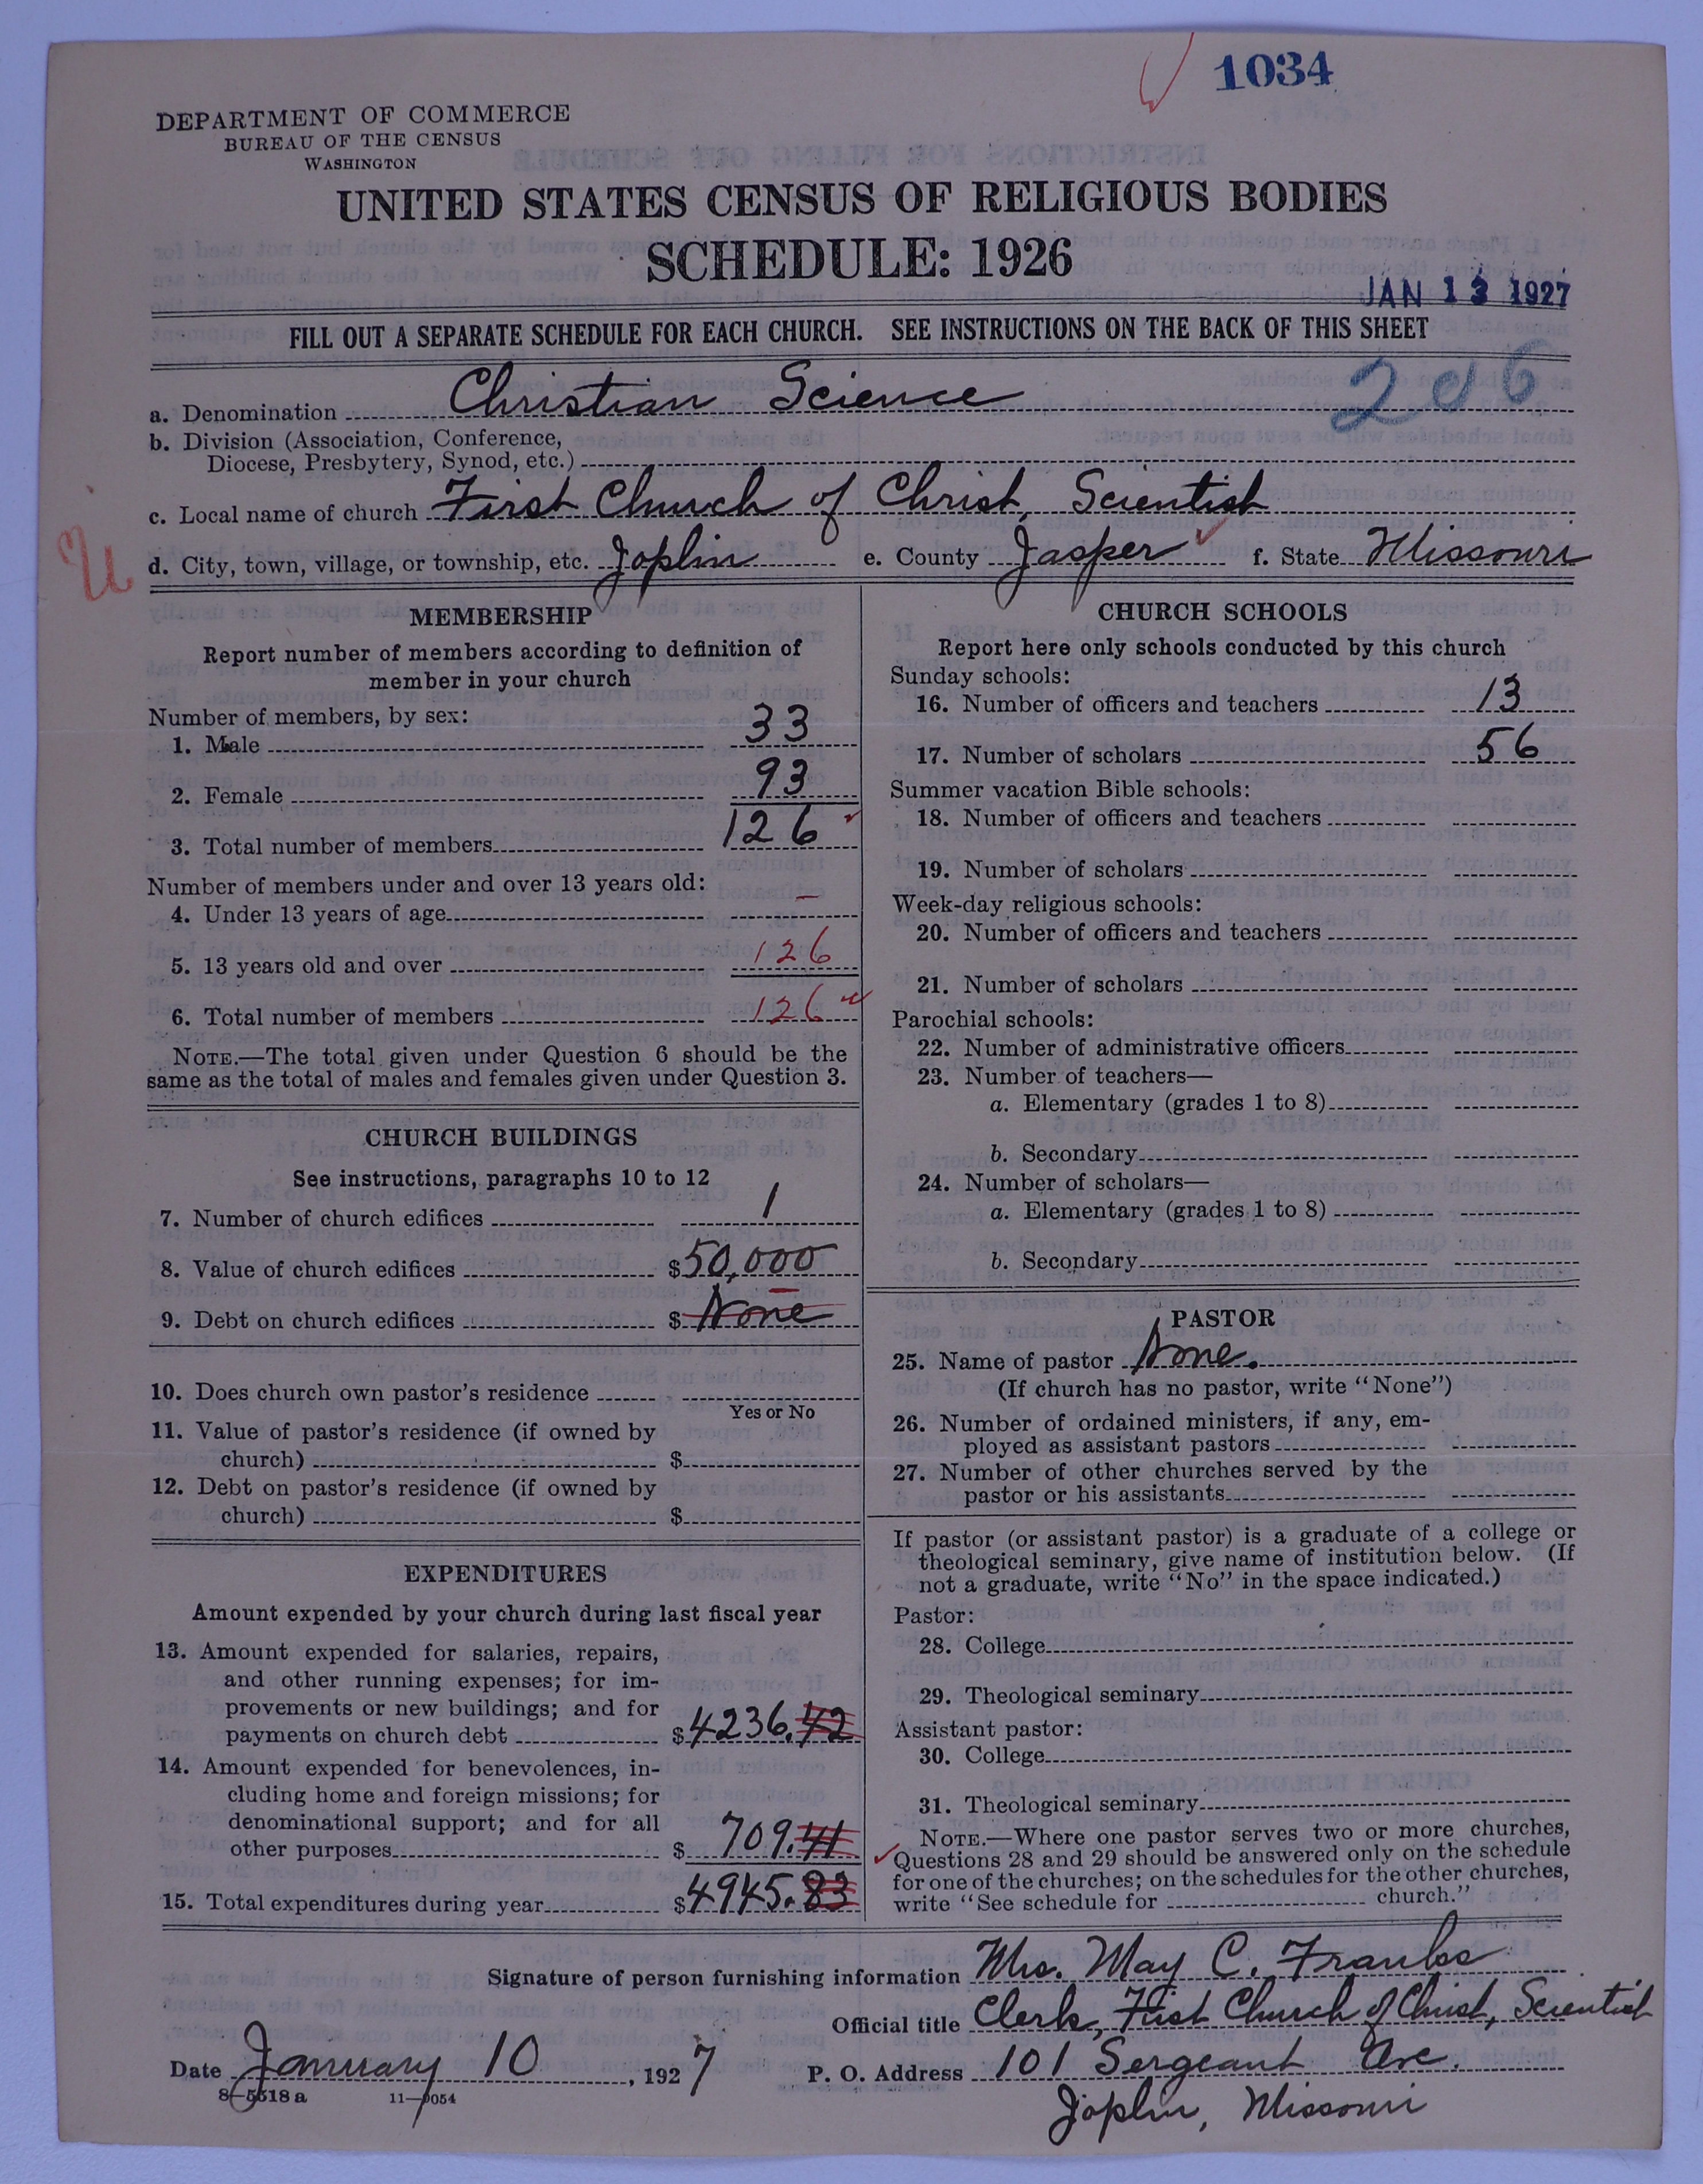 1034
DEPARTMENT OF COMMERCE
BUREAU OF THE CENSUS
WASHINGTON
UNITED STATES CENSUS OF RELIGIOUS BODIES
SCHEDULE: 1926
JAN 13 1927
FILL OUT A SEPARATE SCHEDULE FOR EACH CHURCH. SEE INSTRUCTIONS ON THE BACK OF THIS SHEET
206
a. Denomination Christian Science
b. Division (Association, Conference,
Diocese, Presbytery, Synod, etc.)
c. Local name of church First Church of Christ, Scientist
d. City, town, village, or township, etc. Joplin e. County Jasper f. State Missouri
MEMBERSHIP
Report number of members according to definition of
member in your church
Number of members, by sex:
1. Male 33
2. Female 93
3. Total number of members 126
Number of members under and over 13 years old:
4. Under 13 years of age –
5. 13 years old and over 126
6. Total number of members 126
NOTE.—The total given under Question 6 should be the
same as the total of males and females given under Question 3.
CHURCH BUILDINGS
See instructions, paragraphs 10 to 12
7. Number of church edifices 1
8. Value of church edifices $50,000
9. Debt on church edifices $ None
10. Does church own pastor's residence
Yes or No
11. Value of pastor's residence (if owned by
church) $
12. Debt on pastor's residence (if owned by
church) $
EXPENDITURES
Amount expended by your church during last fiscal year
13. Amount expended for salaries, repairs,
and other running expenses; for im-
provements or new buildings; and for
payments on church debt $4236.42
14. Amount expended for benevolences, in-
cluding home and foreign missions; for
denominational support; and for all
other purposes $ 709.41
15. Total expenditures during year $4945.83
CHURCH SCHOOLS
Report here only schools conducted by this church
Sunday schools:
16. Number of officers and teachers 13
17. Number of scholars 56
Summer vacation Bible schools:
18. Number of officers and teachers
19. Number of scholars
Week-day religious schools:
20. Number of officers and teachers
21. Number of scholars
Parochial schools:
22. Number of administrative officers
23. Number of teachers—
a. Elementary (grades 1 to 8)
b. Secondary
24. Number of scholars—
a. Elementary (grades 1 to 8)
b. Secondary
PASTOR
25. Name of pastor None.
(If church has no pastor, write "None")
26. Number of ordained ministers, if any, em-
ployed as assistant pastors
27. Number of other churches served by the
pastor or his assistants
If pastor (or assistant pastor) is a graduate of a college or
theological seminary, give name of institution below. (If
not a graduate, write "No" in the space indicated.)
Pastor:
28. College
29. Theological seminary
Assistant pastor:
30. College
31. Theological seminary
NOTE.—Where one pastor serves two or more churches,
Questions 28 and 29 should be answered only on the schedule
for one of the churches; on the schedules for the other churches,
write "See schedule for church."
Signature of person furnishing information Mrs. May C. Franks
Official title Clerk, First Church of Christ, Scientist
Date January 10, 1927 P. O. Address 101 Sergeant Ave.
8-5518 a 11-9054
Joplin, Missouri